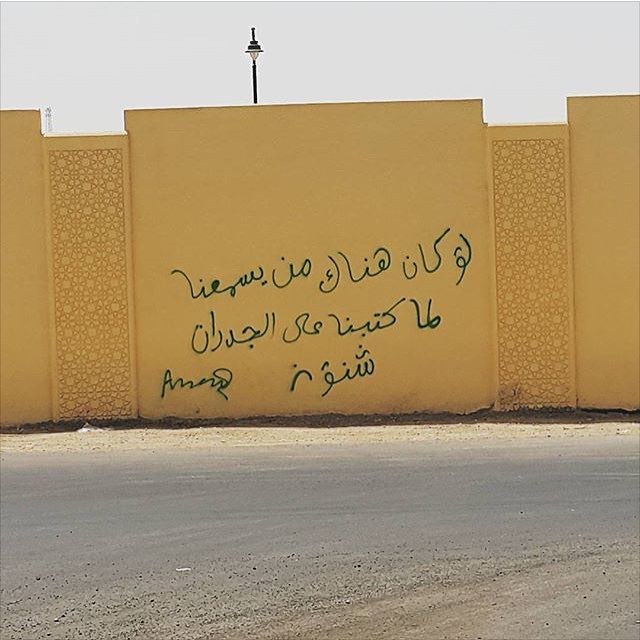 لو كان هناك من يسمعنا
لما كتبنا على الجدران